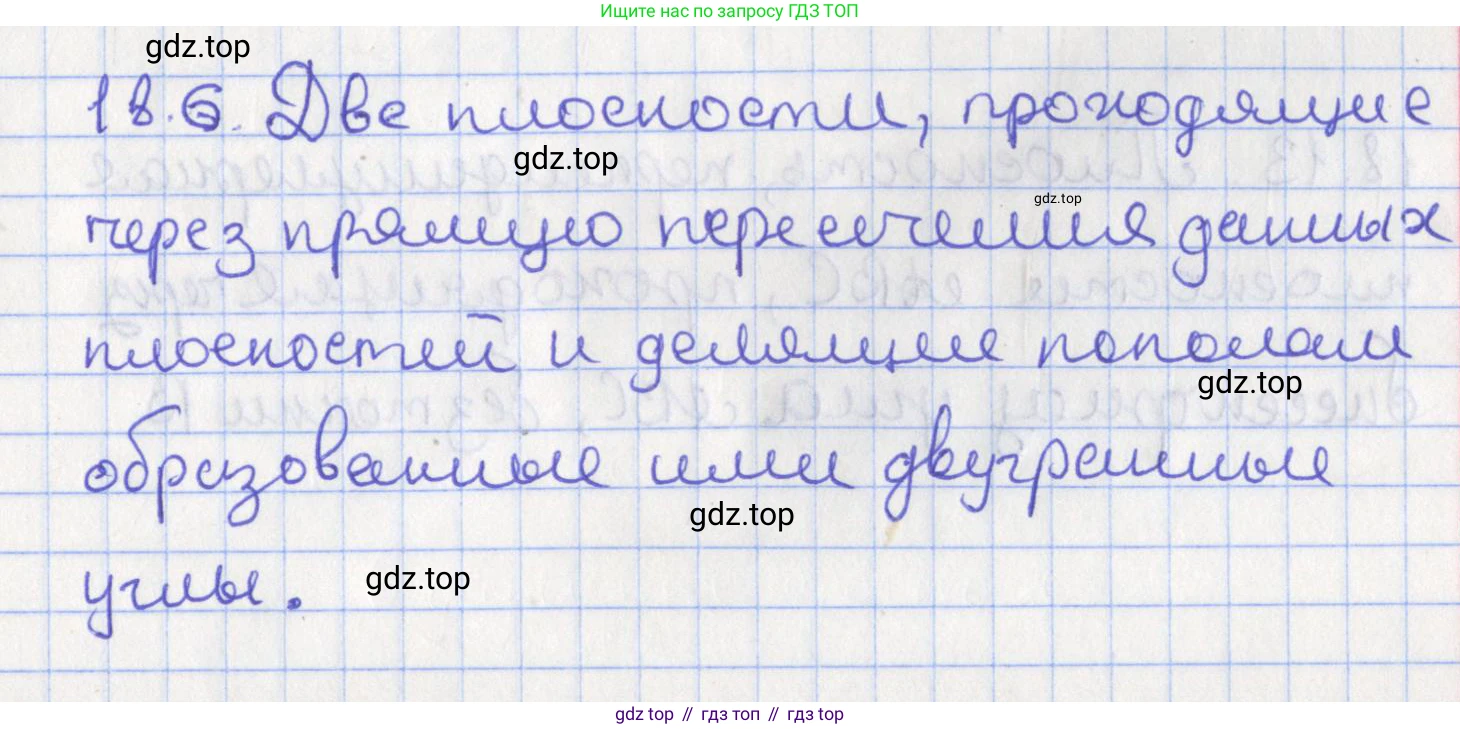 Ищите нас по запросу ГДЗ ТОП
gdz.top
18.6. Две плоскости, проходящие
gdz.top
gdz.top
через прямую пересечения данных
плоскостей и делящие пополам
gdz.top
образованные ими двугранные
gdz.top
углы.
gdz.top
gdz top // гдз топ // гдз top